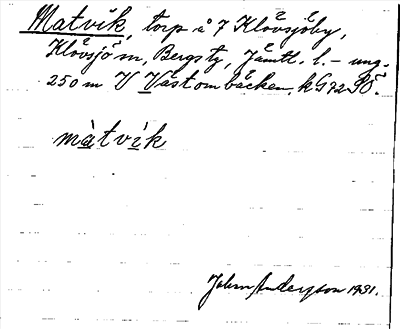 Matvik, torp å 7 Klövsjöby,
Klövsjö sn, Bergs tg, Jämtl. l. – ung.
250 m V Västombäcken, k G72SÖ.
màtvik
John Anderson 1931.